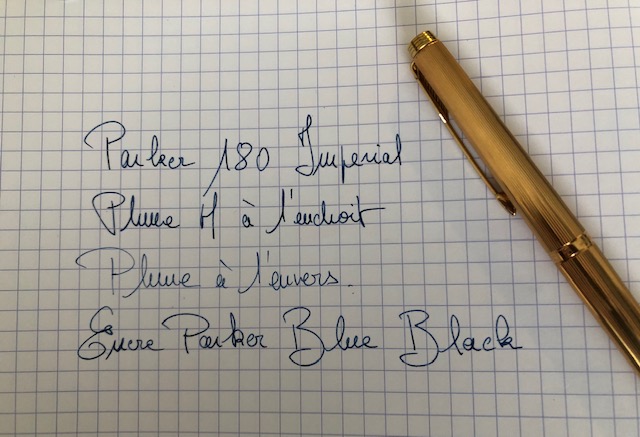 Parker 180 Imperial
Plume M à l'endroit
Plume à l'envers.
Encre Parker Blue Black